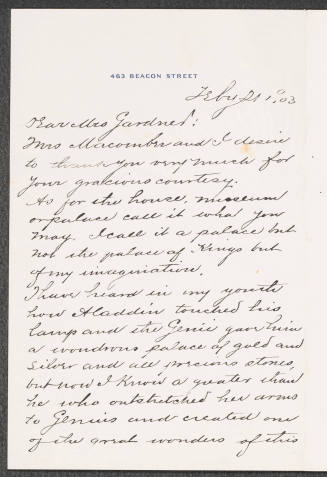 463 BEACON STREET
Feby 21 1903
Dear Mrs Gardner:
Mrs Macomber and I desire
to thank you very much for
your gracious courtesy.
As for the house, museum
or palace call it what you
may. I call it a palace but
not the palace of Kings but
of my imagination.
I have heard in my youth
how Aladdin touched his
lamp and the Genie gave him
a wondrous palace of gold and
silver and all precious stones,
but now I know a greater than
he who outstretched her arms
to Genius and created one
of the great wonders of this